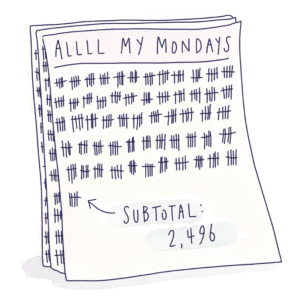 ALLLL MY MONDAYS
SUBTOTAL:
2,496